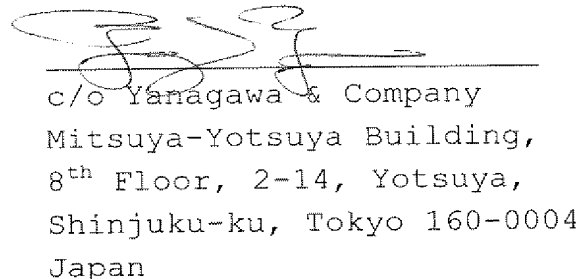 c/o Yanagawa & Company
Mitsuya-Yotsuya Building,
8th Floor, 2-14, Yotsuya,
Shinjuku-ku, Tokyo 160-0004
Japan